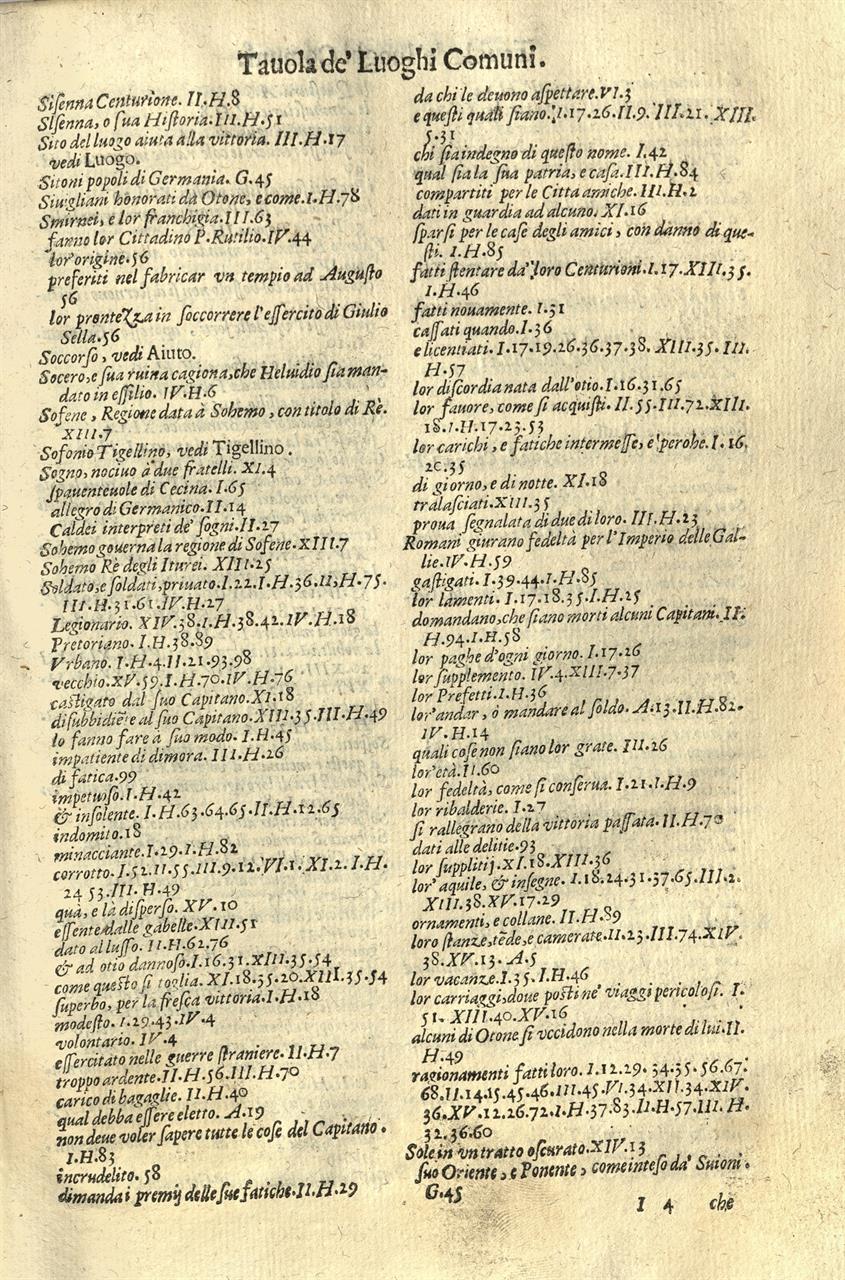 Tauola de' Luoghi Comuni.
Sisenna Centurione. II.H.8
Sisenna, o sua Historia.III.H.51
Sito del luogo aiuta alla vittoria. III.H.17
vedi Luogo.
Sitoni popoli di Germania. G.45
Siuigliani honorati da Otone, e come.I.H.78
Smirnei, e lor franchigia.III.63
fanno lor Cittadino P.Rutilio.IV.44
lor'origine.56
preferiti nel fabricar vn tempio ad Augusto
56
lor prontezza in soccorrere l'essercito di Giulio
Sella.56
Soccorso, vedi Aiuto.
Socero, e sua ruina cagiona, che Heluidio sia man-
dato in essilio. IV.H.6
Sofene, Regione data à Sohemo, con titolo di Rè.
XIII.7
Sofonio Tigellino, vedi Tigellino.
Sogno, nociuo à due fratelli. XI.4
spauenteuole di Cecina. I.65
allegro di Germanico.II.14
Caldei interpreti de' sogni.II.27
Sohemo gouerna la regione di Sofene.XIII.7
Sohemo Rè degli Iturei. XIII.25
Soldato, e soldati, priuato.I.22.I.H.36.II,H.75.
III.H.31.61.IV.H.27
Legionario. XIV.38.I.H.38.42.IV.H.18
Pretoriano. I.H.38.89
Vrbano. I.H.4.II.21.93.98
vecchio.XV.59.I.H.70.IV.H.76
castigato dal suo Capitano.XI.18
disubbidiẽte al suo Capitano.XIII.35.III.H.49
lo fanno fare à suo modo. I.H.45
impatiente di dimora. III.H.26
di fatica.99
impetuoso.I.H.42
& insolente. I.H.63.64.65.II.H.12.65
indomito.18
minacciante.I.29.I.H.82
corrotto.I.52.II.55.III.9.12.VI.1.XI.2.I.H.
24 53.III.H.49
quà, e là disperso. XV.10
essente dalle gabelle.XIII.51
dato al lusso. II.H.62.76
& ad otio dannoso.I.16.31.XIII.35.54
come questo si toglia. XI.18.35.20.XIII.35.54
superbo, per la fresca vittoria.I.H.18
modesto. I.29.43.IV.4
volontario. IV.4
essercitato nelle guerre straniere. II.H.7
troppo ardente.II.H.56.III.H.70
carico di bagaglie. II.H.40
qual debba essere eletto. A.19
non deue voler sapere tutte le cose del Capitano.
I.H.83
incrudelito. 58
dimanda i premij delle sue fatiche.II.H.29
da chi le deuono aspettare.VI.3
e questi quali siano.I.17.26.II.9.III.21.XIII.
5.31
chi sia indegno di questo nome. I.42
qual sia la sua patria, e casa.III.H.84
compartiti per le Città amiche.III.H.2
dati in guardia ad alcuno. XI.16
sparsi per le case degli amici, con danno di que-
sti. I.H.85
fatti stentare da' loro Centurioni.I.17.XIII.35.
I.H.46
fatti nouamente. I.31
cassati quando.I.36
e licentiati.I.17.19.26.36.37.38. XIII.35.III.
H.57
lor discordia nata dall'otio.I.16.31.65
lor fauore, come si acquisti. II.55.III.72.XIII.
18.I.H.17.23.53
lor carichi, e fatiche intermesse, e perche.I.16.
20.35
di giorno, e di notte. XI.18
tralasciati.XIII.35
proua segnalata di due di loro. III.H.23
Romani giurano fedeltà per l'Imperio delle Gal-
lie.IV.H.59
gastigati.I.39.44.I.H.85
lor lamenti. I.17.18.35.I.H.25
domandano, che siano morti alcuni Capitani.II.
H.94.I.H.58
lor paghe d'ogni giorno. I.17.26
lor supplemento. IV.4.XIII.7.37
lor Prefetti.I.H.36
lor'andar, ò mandare al soldo. A.13.II.H.82.
IV.H.14
quali cose non siano lor grate. III.26
lor'età.II.60
lor fedeltà, come si conserua. I.21.I.H.9
lor ribalderie. I.27
si rallegrano della vittoria passata. II.H.70
dati alle delitie.93
lor supplitij.XI.18.XIII.36
lor'aquile, & insegne. I.18.24.31.37.65.III.2.
XIII.38.XV.17.29
ornamenti, e collane. II.H.89
loro stanze, tẽde, e camerate.II.23.III.74.XIV.
38.XV.13. A.5
lor vacanze.I.35.I.H.46
lor carriaggi, doue posti ne' viaggi pericolosi. I.
51.XIII.40.XV.16
alcuni di Otone si vccidono nella morte di lui.II.
H.49
ragionamenti fatti loro. I.12.29.34.35.56.67.
68.II.14.15.45.46.III.45.VI.34.XII.34.XIV.
36.XV.12.26.72.I.H.37.83.II.H.57.III.H.
32.36.60
Sole in vn tratto oscurato.XIV.13
suo Oriente, e Ponente, come inteso da' Suioni.
G.45
I 4 che